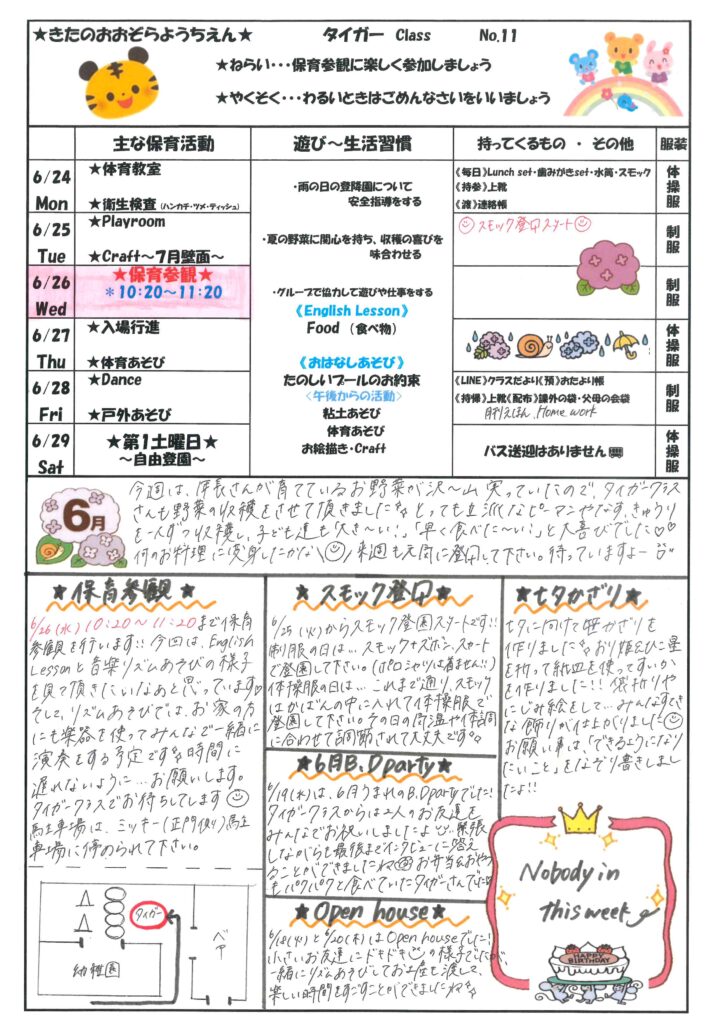 ★きたのおおぞらようちえん★ タイガー Class No.11
★ねらい・・・保育参観に楽しく参加しましょう
★やくそく・・・わるいときはごめんなさいをいいましょう
主な保育活動 遊び～生活習慣 持ってくるもの ・ その他 服装
6/24 Mon
★体育教室
★衛生検査(ハンカチ・ツメ・ティッシュ)
《毎日》Lunch set・歯みがきset・水筒・スモック
《持参》上靴
《渡》連絡帳
体操服
6/25 Tue
★Playroom
★Craft～7月壁面～
スモック登園スタート
制服
6/26 Wed
★保育参観★
＊10:20～11:20
制服
6/27 Thu
★入場行進
★体育あそび
体操服
6/28 Fri
★Dance
★戸外あそび
《LINE》クラスだより《預》おたより帳
《持帰》上靴《配布》課外の袋・父母の会袋
月刊えほん、Home work
制服
6/29 Sat
★第1土曜日★
～自由登園～
バス送迎はありません
体操服
・雨の日の登降園について
安全指導をする
・夏の野菜に関心を持ち、収穫の喜びを
味合わせる
・グループで協力して遊びや仕事をする
《English Lesson》
Food （食べ物）
《おはなしあそび》
たのしいプールのお約束
〈午後からの活動〉
粘土あそび
体育あそび
お絵描き・Craft
6月
今週は、園長さんが育てているお野菜が沢〜山 実っていたので、タイガークラス
さんも野菜の収穫をさせて頂きました とっても立派なピーマンやなす、きゅうり
を一人ずつ収穫し、子ども達も「大き〜い！」「早く食べた〜い！」と大喜びでした♡♡
何のお料理に変身したかな 来週も元気に登園して下さい。待っていますよー
★保育参観★
6/26(水) 10:20〜11:20まで保育
参観を行います!! 今回は、English
Lessonと音楽リズムあそびの様子
を見て頂きたいなあと思っています
そして、リズムあそびでは、お家の方
にも楽器を使ってみんなで一緒に
演奏をする予定です 時間に
遅れないように…お願いします。
タイガークラスでお待ちしてします
駐車場は、ミッキー(正門使り)駐
車場に停められて下さい。
タイガー
ベア
幼稚園
★スモック登園★
6/25(火)からスモック登園スタートです!!
制服の日は…スモック+ズボン、スカート
で登園して下さい。(ポロシャツは着ません!!)
体操服の日は…これまで通り、スモック
はかばんの中に入れて体操服で
登園して下さい。その日の気温や体調
に合わせて調節されて大丈夫です
★6月B.Dparty★
6/19(水)は、6月うまれのB.Dpartyでした!
タイガークラスからは2人のお友達を
みんなでお祝いしましたよ 緊張
しながらも最後までインタビューに答え
ることができましたね お弁当&おやつ
もパクパクと食べていたタイガーさんでした
★Open house★
6/18(火)と6/20(木)はOpen houseでした!
小さいお友達にドキドキの様子でしたが
一緒にリズムあそびしてお土産も渡して、
楽しい時間をすごすことができましたね
★七夕かざり★
七夕に向けて笹かざりを
作りました おり姫&ひこ星
を折って紙皿を使ってすいか
を作りました!! 袋折りや
にじみ絵をして…みんなすてき
な飾りが仕上がりました
お願い事は、「できるようになり
たいこと」をなぞり書きしまし
たよ!!
Nobody in
this week
HAPPY
BIRTHDAY